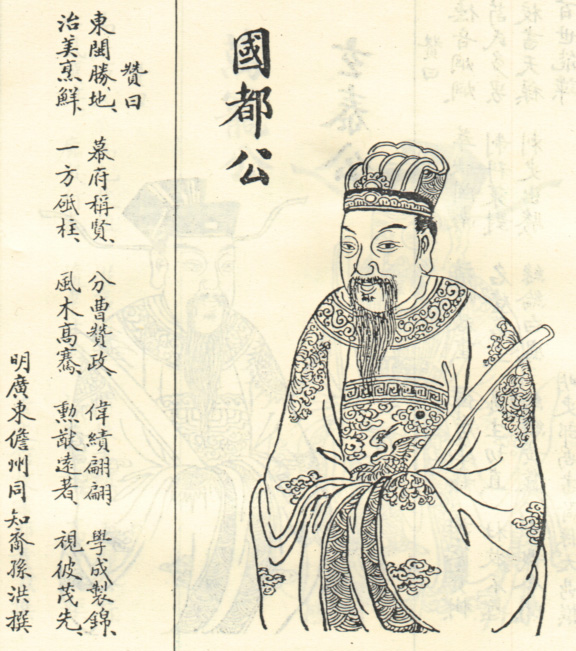 國都公
贊曰
東閩勝地、幕府稱賢、分曹贊政、偉績翩翩、學成製錦、
治美烹鮮、一方砥柱、風木高騫、勲猷遠著、視彼茂先、
明廣東儋州同知裔孫洪撰